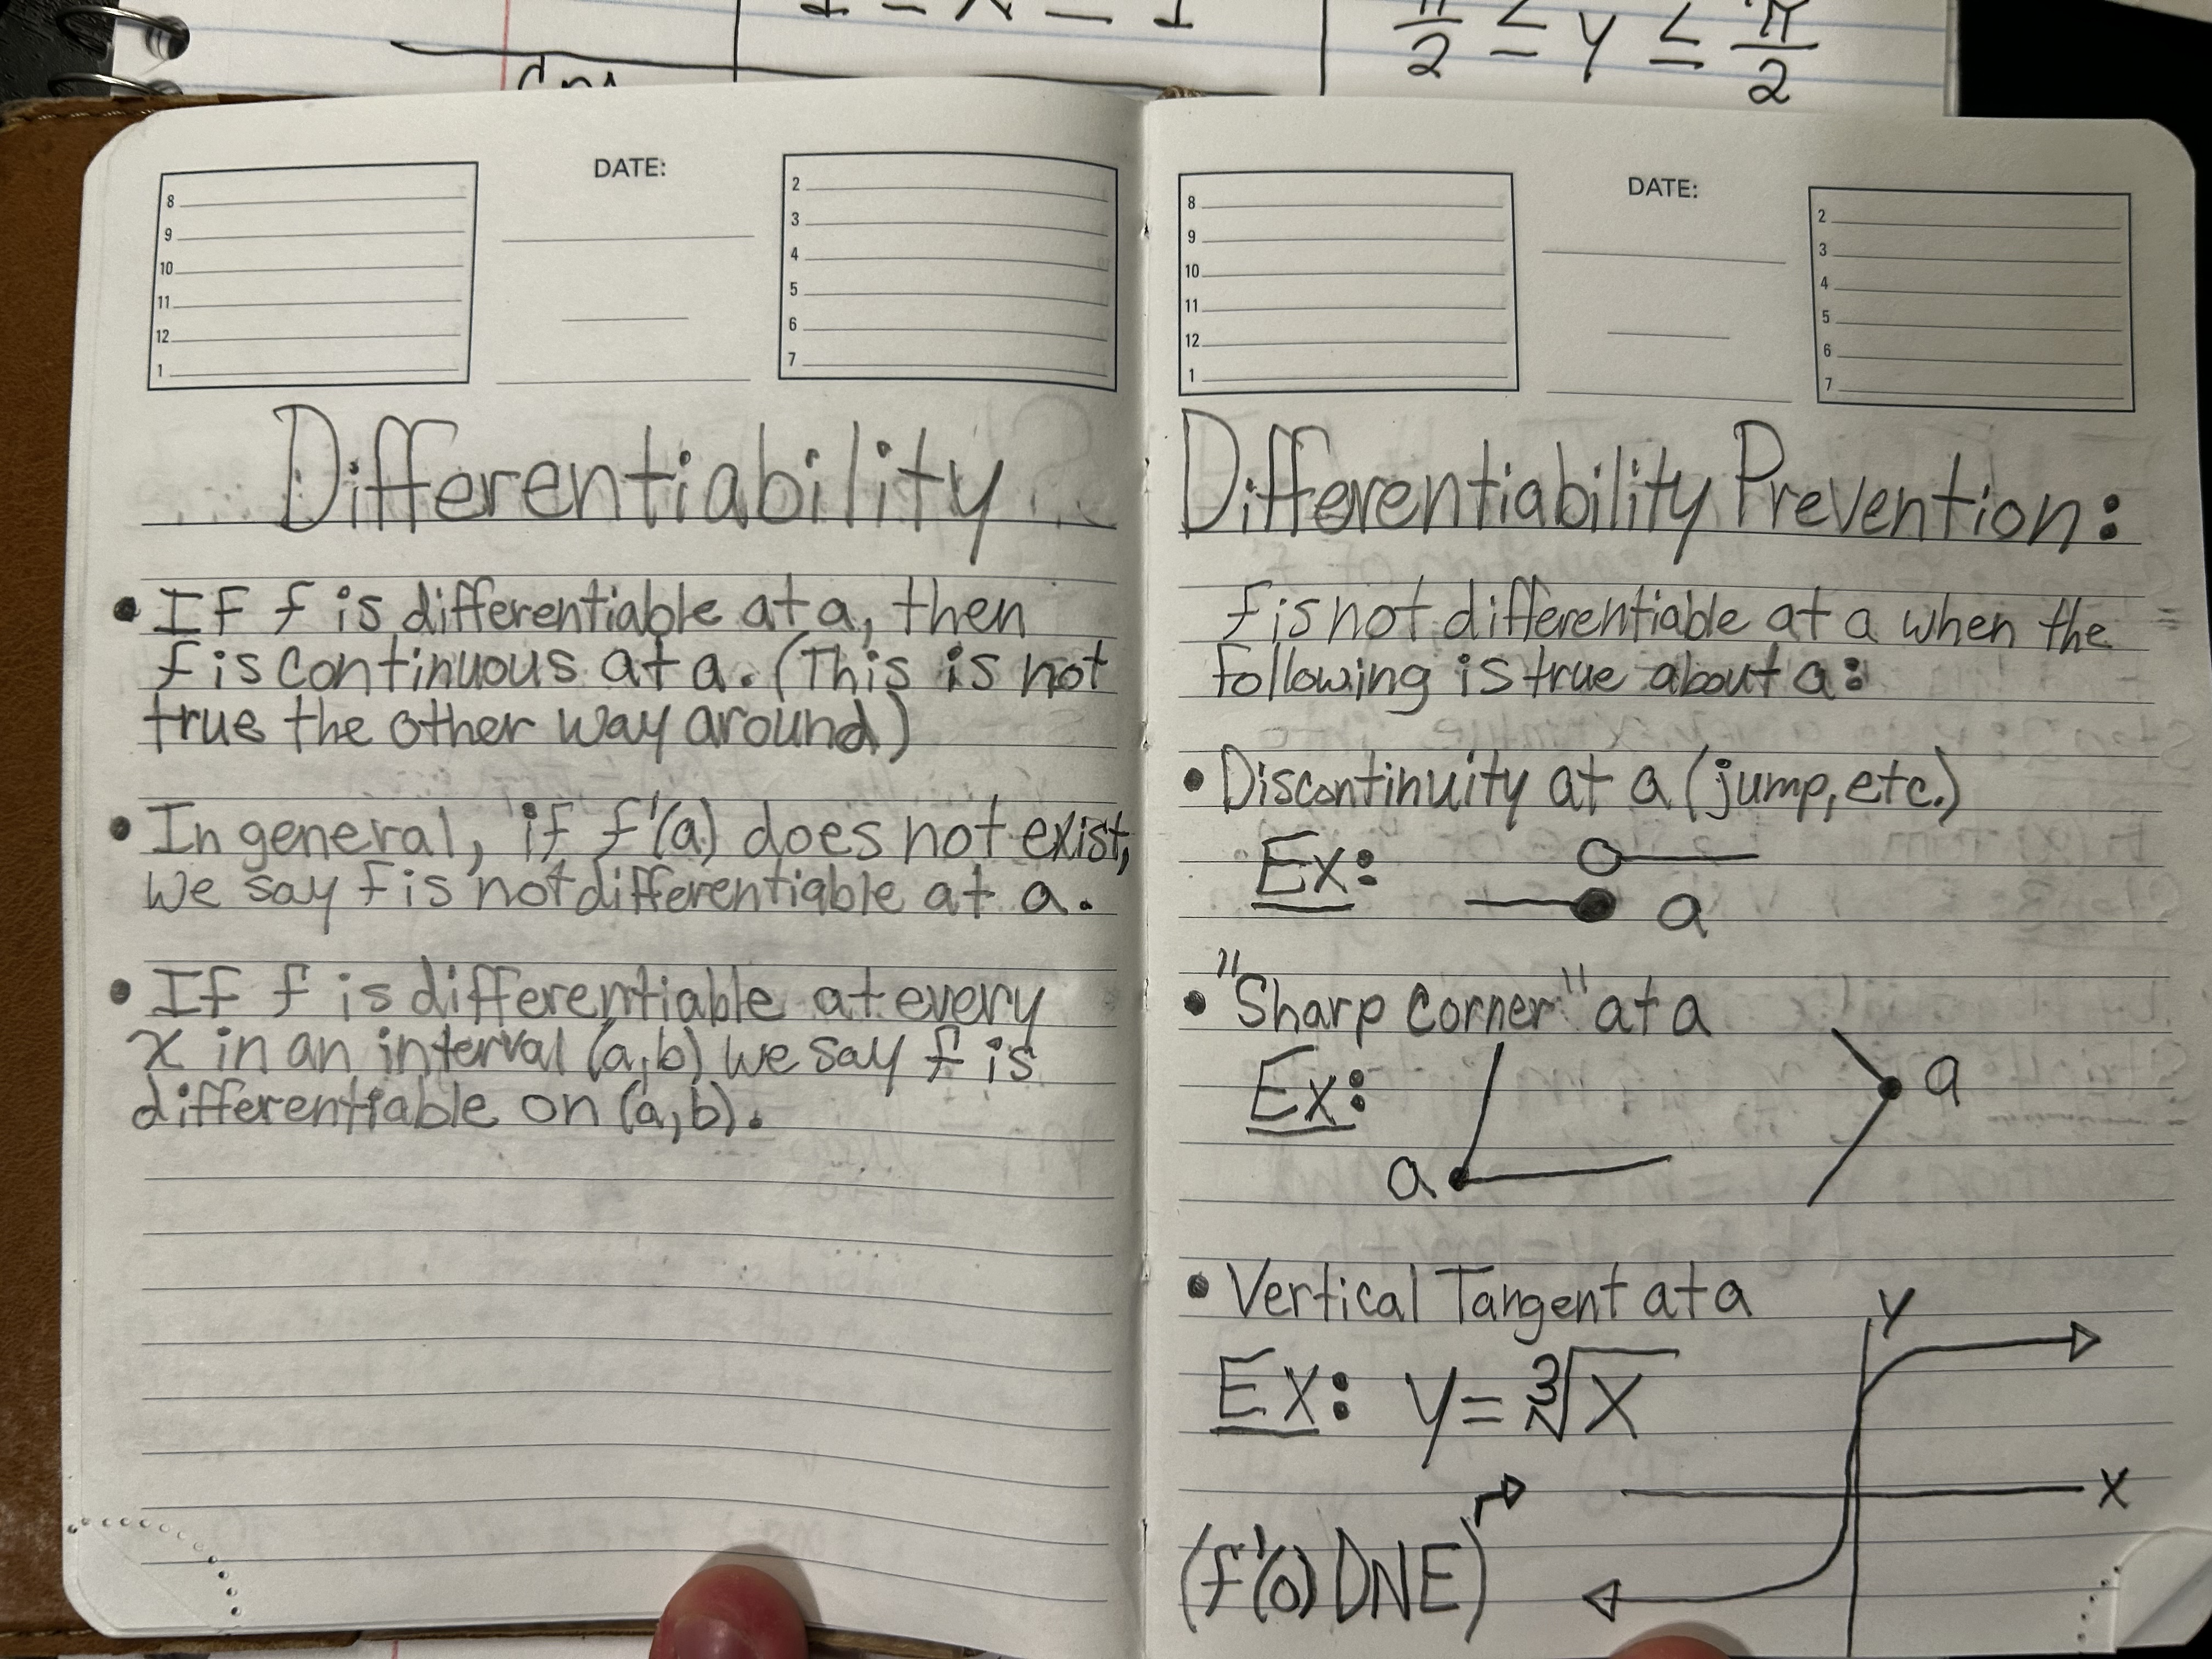 DATE:
8
9
10
11
12
1
2
3
4
5
6
7
Differentiability
• If f is differentiable at a, then
f is continuous at a. (This is not
true the other way around)
• In general, if f'(a) does not exist,
we say f is not differentiable at a.
• If f is differentiable at every
x in an interval (a,b) we say f is
differentiable on (a,b).
DATE:
8
9
10
11
12
1
2
3
4
5
6
7
Differentiability Prevention:
f is not differentiable at a when the
following is true about a:
• Discontinuity at a (jump, etc.)
Ex:
a
• "Sharp Corner" at a
Ex:
a
a
• Vertical Tangent at a
Ex: y = ∛x
y
x
(f'(0) DNE)
π/2 ≤ y ≤ π/2